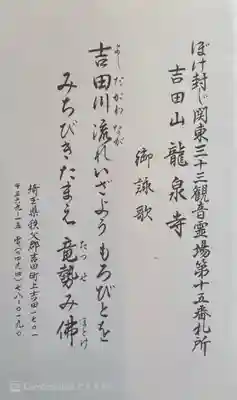 ぼけ封じ関東三十三観音霊場第十五番札所
吉田山 龍泉寺
御詠歌
吉田川 流れいざよう もろびとを
よしだがわ なが
みちびきたまえ 竜勢み佛
たつせ ほとけ
埼玉県秩父郎吉田町上吉田一七〇一